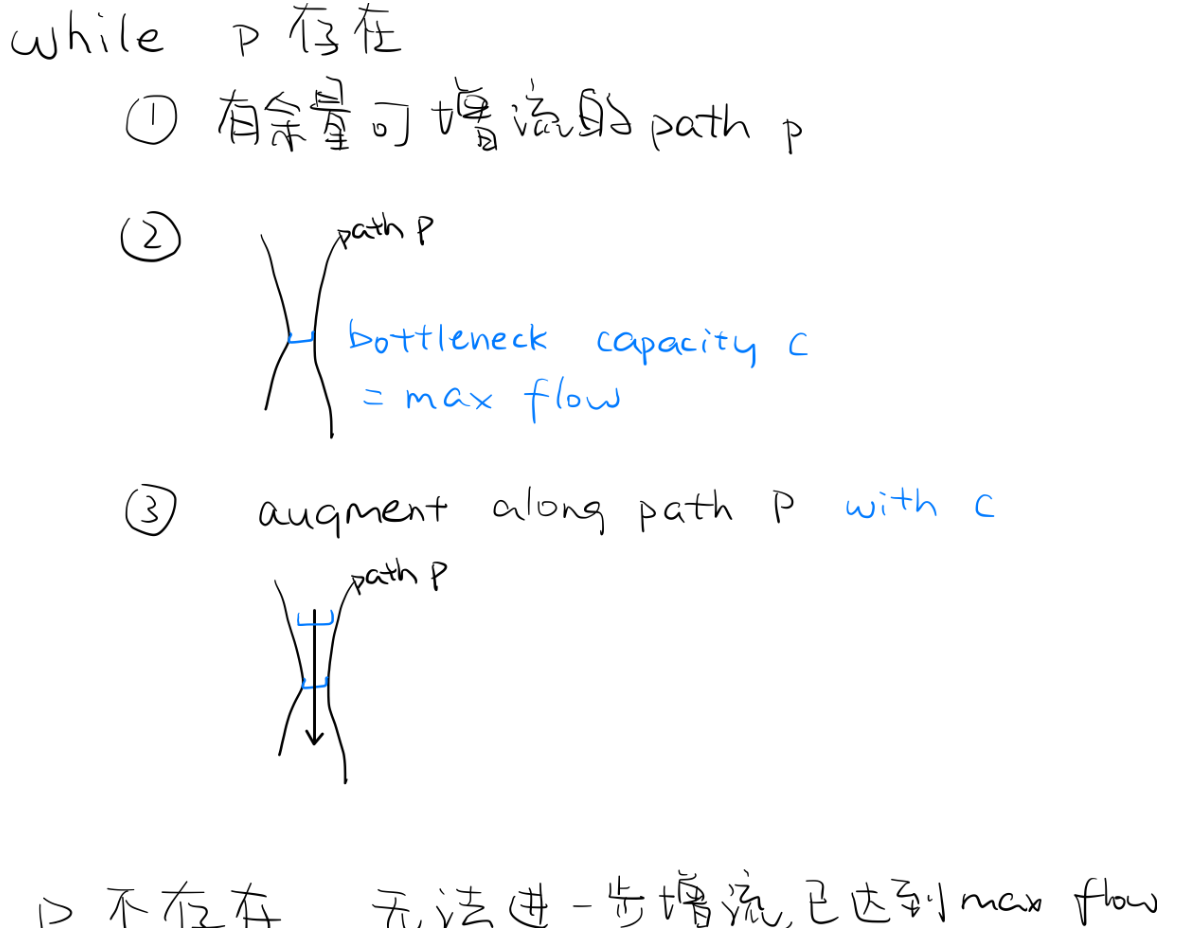 while p 存在
① 有余量可增流的path p
② path P
bottleneck capacity c
= max flow
③ augment along path P with c
path P
P 不存在 无法进一步增流,已达到max flow